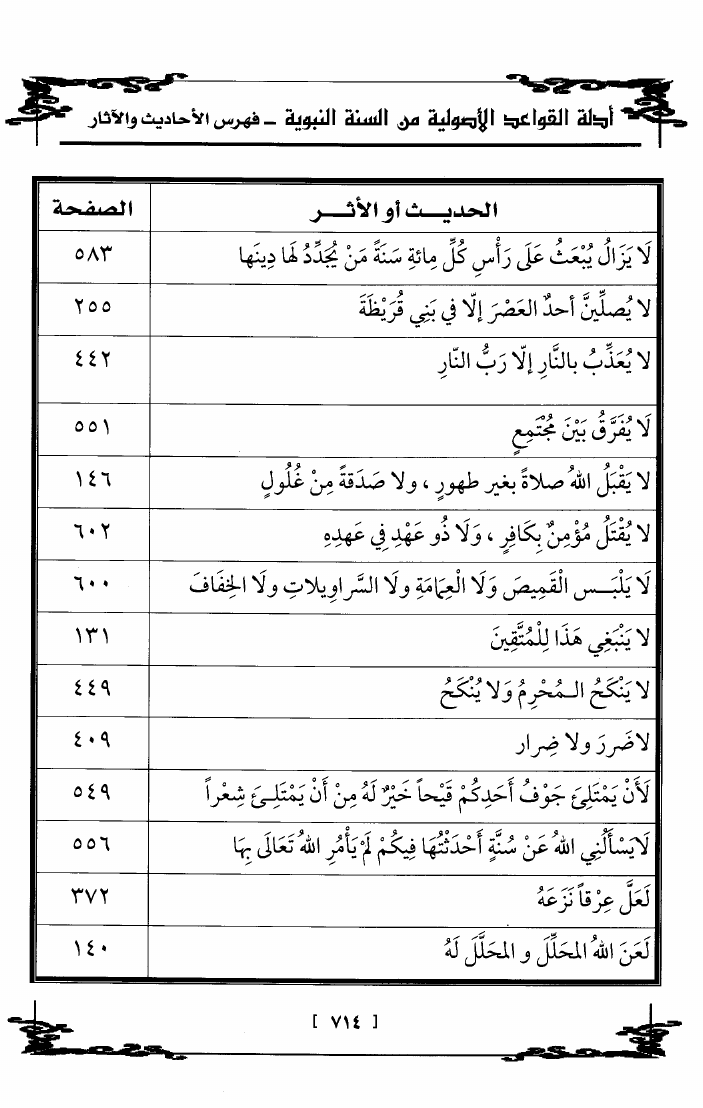 أدلة القواعد الأصولية من السنة النبوية ـ فهرس الأحاديث والآثار
الحديـــث أو الأثـــر الصفحة
لَا يَزَالُ يُبْعَثُ عَلَى رَأْسِ كُلِّ مِائَةِ سَنَةً مَنْ يُجَدِّدُ لَهَا دِينَها ٥٨٣
لا يُصلِّينَّ أحدٌ العَصْرَ إلّا في بَنِي قُرَيْظَةَ ٢٥٥
لا يُعَذِّبُ بالنَّارِ إلّا رَبُّ النّارِ ٤٤٢
لَا يُفَرَّقُ بَيْنَ مُجْتَمِعٍ ٥٥١
لا يَقْبَلُ اللهُ صلاةً بغير طهورٍ ، ولا صَدَقةً مِنْ غُلُولٍ ١٤٦
لا يُقْتَلُ مُؤْمِنٌ بِكَافِرٍ ، وَلَا ذُو عَهْدِ فِي عَهدِهِ ٦٠٢
لَا يَلْبَـــس الْقَمِيصَ وَلَا الْعِمَامَةِ ولَا السَّراوِيلاتِ ولَا الخِفَافَ ٦٠٠
لا يَنْبَغِي هَذَا لِلْمُتَّقِينَ ١٣١
لا يَنْكَحُ الـمُحْرِمُ وَلا يُنْكَحُ ٤٤٩
لاضَررَ ولا ضِرار ٤٠٩
لَأَنْ يَمْتَلِئَ جَوْفُ أَحَدِكُمْ قَيْحاً خَيْرٌ لَهُ مِنْ أَنْ يَمْتَلِـئَ شِعْراً ٥٤٩
لَايَسْأَلُنِي اللهُ عَنْ سُنَّةٍ أَحْدَثْتُهَا فِيكُمْ لَمْ يَأْمُرِ اللهُ تَعَالَى بِهَا ٥٥٦
لَعَلَّ عِرْقاً نَزَعَهُ ٣٧٢
لَعَنَ اللهُ المحَلِّلَ و المحَلَّلَ لَهُ ١٤٠
[ ٧١٤ ]